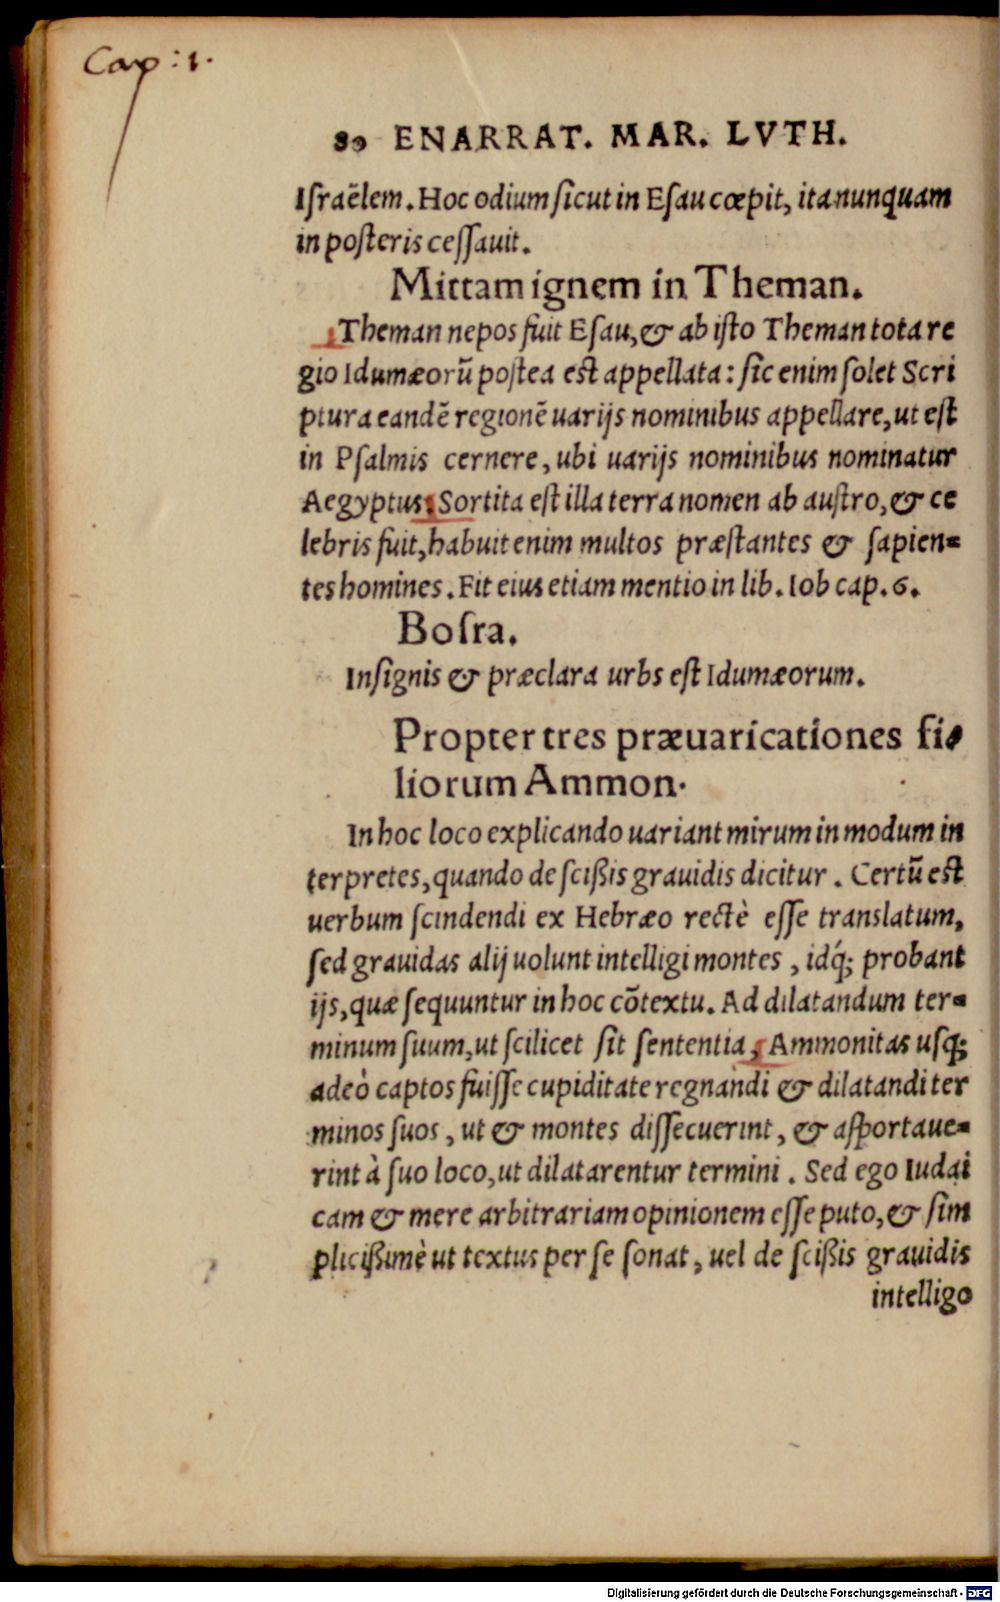 Cap: 1.
80 ENARRAT. MAR. LVTH.
Iſraēlem. Hoc odium ſicut in Eſau cœpit, ita nunquam
in poſteris ceſſauit.
Mittam ignem in Theman.
Theman nepos fuit Eſau, & ab iſto Theman tota re
gio Idumæorū poſtea eſt appellata: ſic enim ſolet Scri
ptura eandē regionē uarijs nominibus appellare, ut eſt
in Pſalmis cernere, ubi uarijs nominibus nominatur
Aegyptus. Sortita eſt illa terra nomen ab auſtro, & ce
lebris fuit, habuit enim multos præſtantes & ſapien=
tes homines. Fit eius etiam mentio in lib. Iob cap. 6.
Boſra.
Inſignis & præclara urbs eſt Idumæorum.
Propter tres præuaricationes fi=
liorum Ammon.
In hoc loco explicando uariant mirum in modum in
terpretes, quando de ſcißis grauidis dicitur. Certū eſt
uerbum ſcindendi ex Hebræo rectè eſſe translatum,
ſed grauidas alij uolunt intelligi montes, idq́; probant
ijs, quæ ſequuntur in hoc cōtextu. Ad dilatandum ter=
minum ſuum, ut ſcilicet ſit ſententia, Ammonitas uſq;
adeò captos fuiſſe cupiditate regnandi & dilatandi ter
minos ſuos, ut & montes diſſecuerint, & aſportaue=
rint à ſuo loco, ut dilatarentur termini. Sed ego Iudai
cam & mere arbitrariam opinionem eſſe puto, & ſim
plicißimè ut textus per ſe ſonat, uel de ſcißis grauidis
intelligo
Digitalisierung gefördert durch die Deutsche Forschungsgemeinschaft - DFG